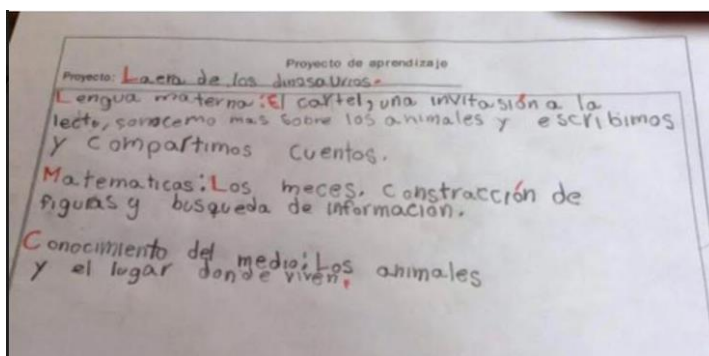 Proyecto de aprendizaje
Proyecto: La era de los dinosaurios.
Lengua materna: El cartel, una invitasión a la
lecto, sonocemo mas sobre los animales y escribimos
y compartimos cuentos.
Matematicas: Los meces. constracción de
figuras y busqueda de información.
Conocimiento del medio: Los animales
y el lugar donde viven.